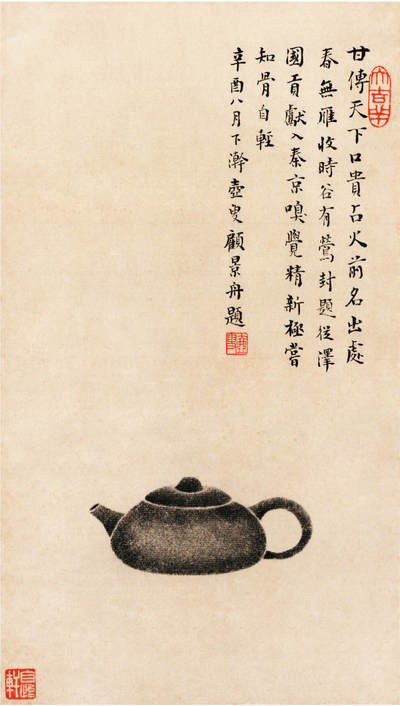 大吉羊
甘傳天下口貴占火前名出處
春無雁收時谷有鶯封題從澤
國貢獻入秦京嗅覺精新極嘗
知骨自輕
辛酉八月下澣壺叟顧景舟題